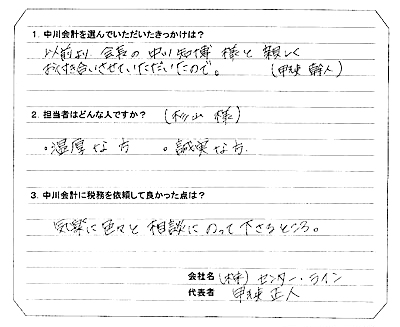 1. 中川会計を選んでいただいたきっかけは?
以前より 会長の 中川 知博 様と 親しく
お付き合いさせていただいたので。 (甲斐 幹人)
2. 担当者はどんな人ですか? (杉山 様)
・温厚な方 ・誠実な方
3. 中川会計に税務を依頼して良かった点は?
気楽に色々と 相談にのって下さるところ。
会社名 (株) センター・ライン
代表者 正人